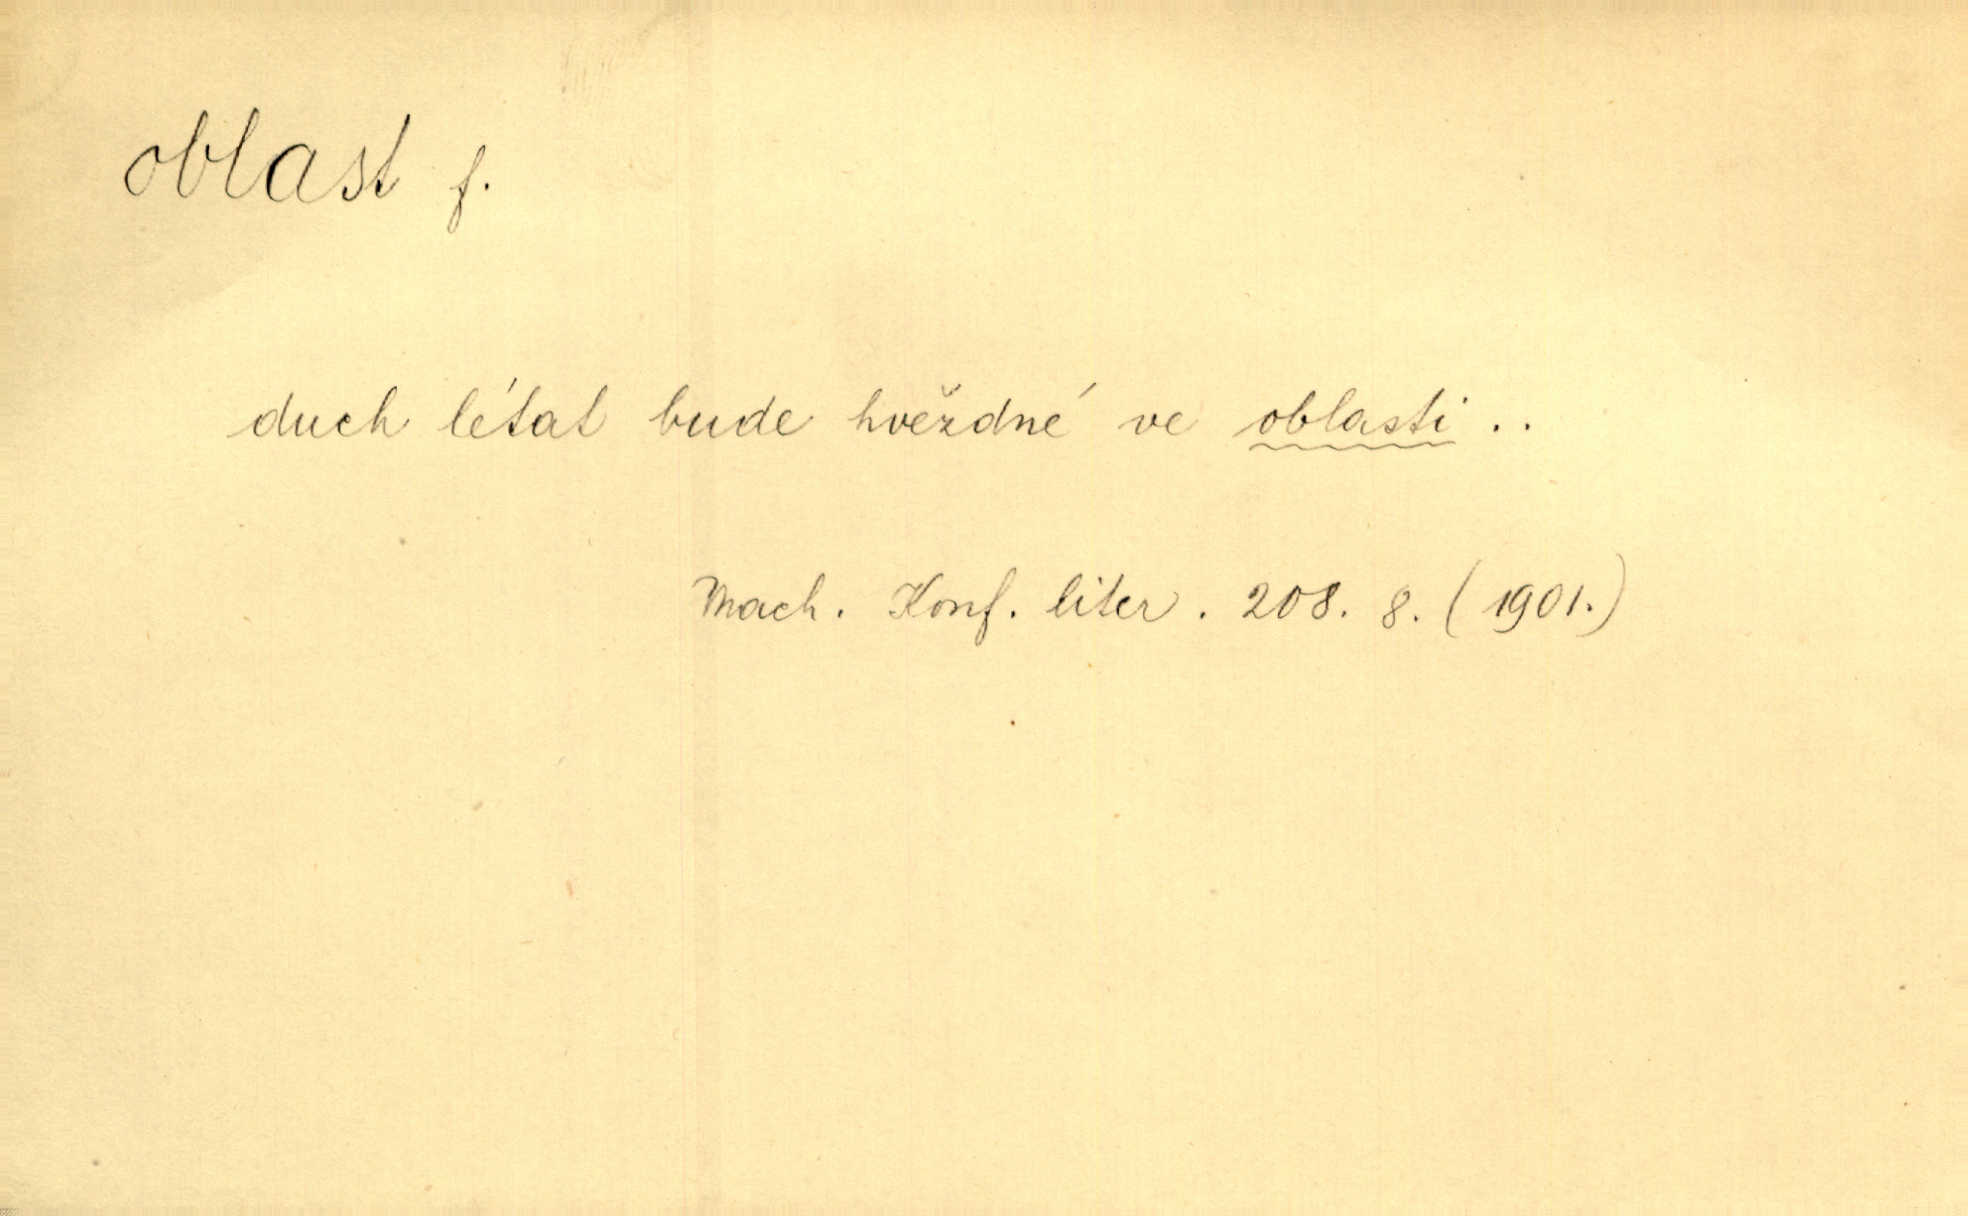 oblast f.
duch létat bude hvězdné ve oblasti ..
Mach. Konf. liter. 208. 8. (1901.)